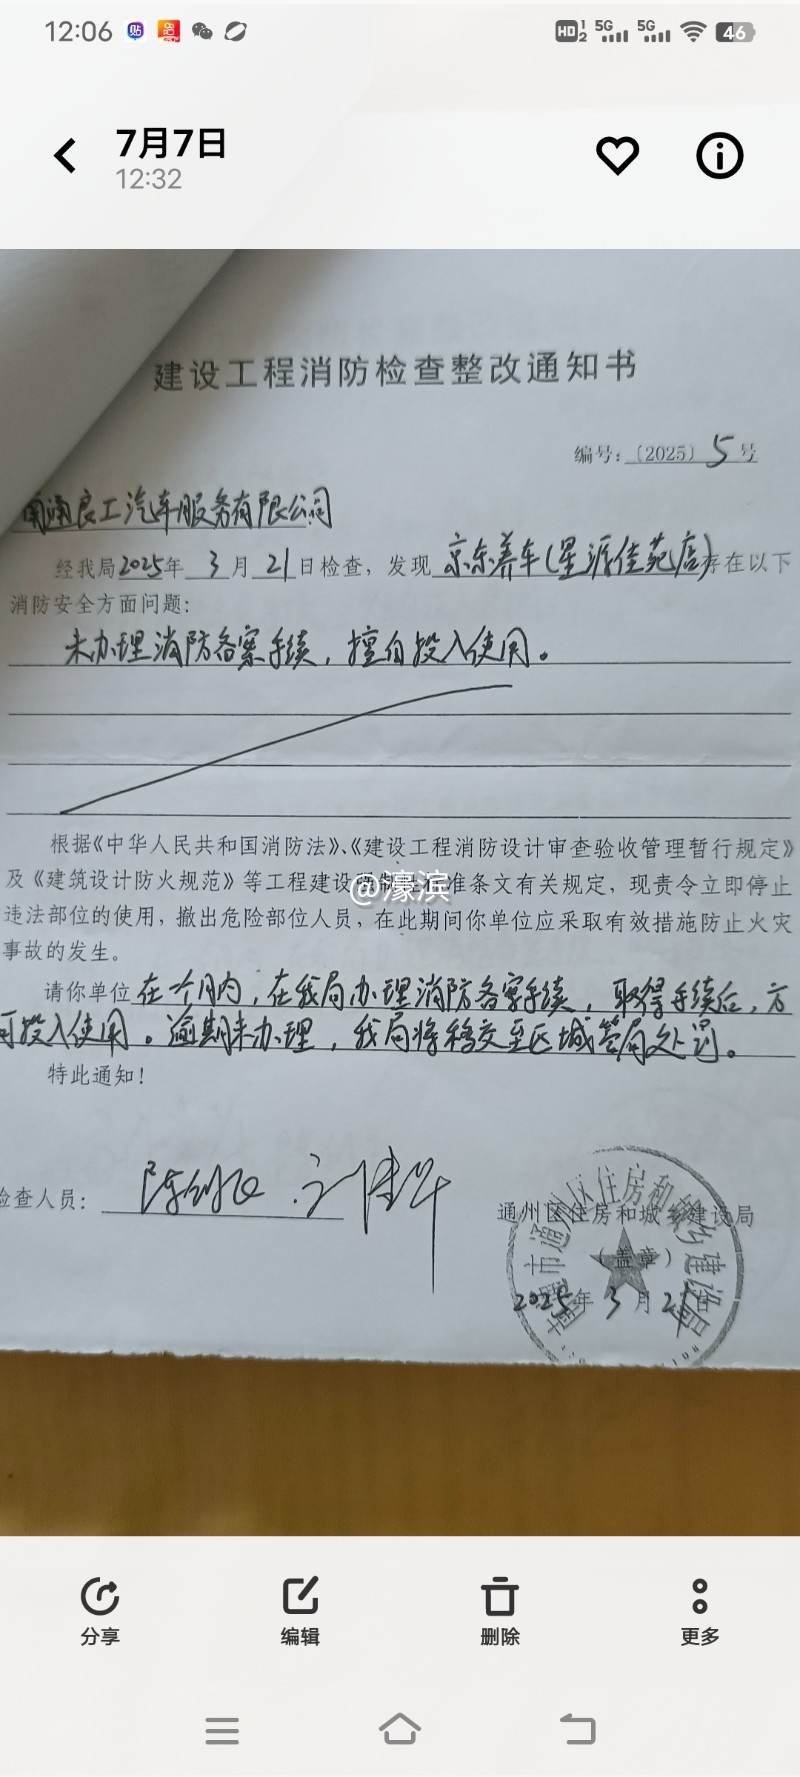 12:06
HD 1 2 5G 5G 46
7月7日
12:32
建设工程消防检查整改通知书
编号:〔2025〕5号
南通良工汽车服务有限公司
经我局2025年3月21日检查,发现京东养车(星源佳苑店)存在以下
消防安全方面问题:
未办理消防备案手续,擅自投入使用。
根据《中华人民共和国消防法》、《建设工程消防设计审查验收管理暂行规定》
及《建筑设计防火规范》等工程建设强制性标准条文有关规定,现责令立即停止
@濠滨
违法部位的使用,撤出危险部位人员,在此期间你单位应采取有效措施防止火灾
事故的发生。
请你单位在一个月内,在我局办理消防备案手续,取得手续后,方
可投入使用。逾期未办理,我局将移交至区城管局处罚。
特此通知!
检查人员:
通州区住房和城乡建设局
(盖章)
2025年3月21
分享 编辑 删除 更多